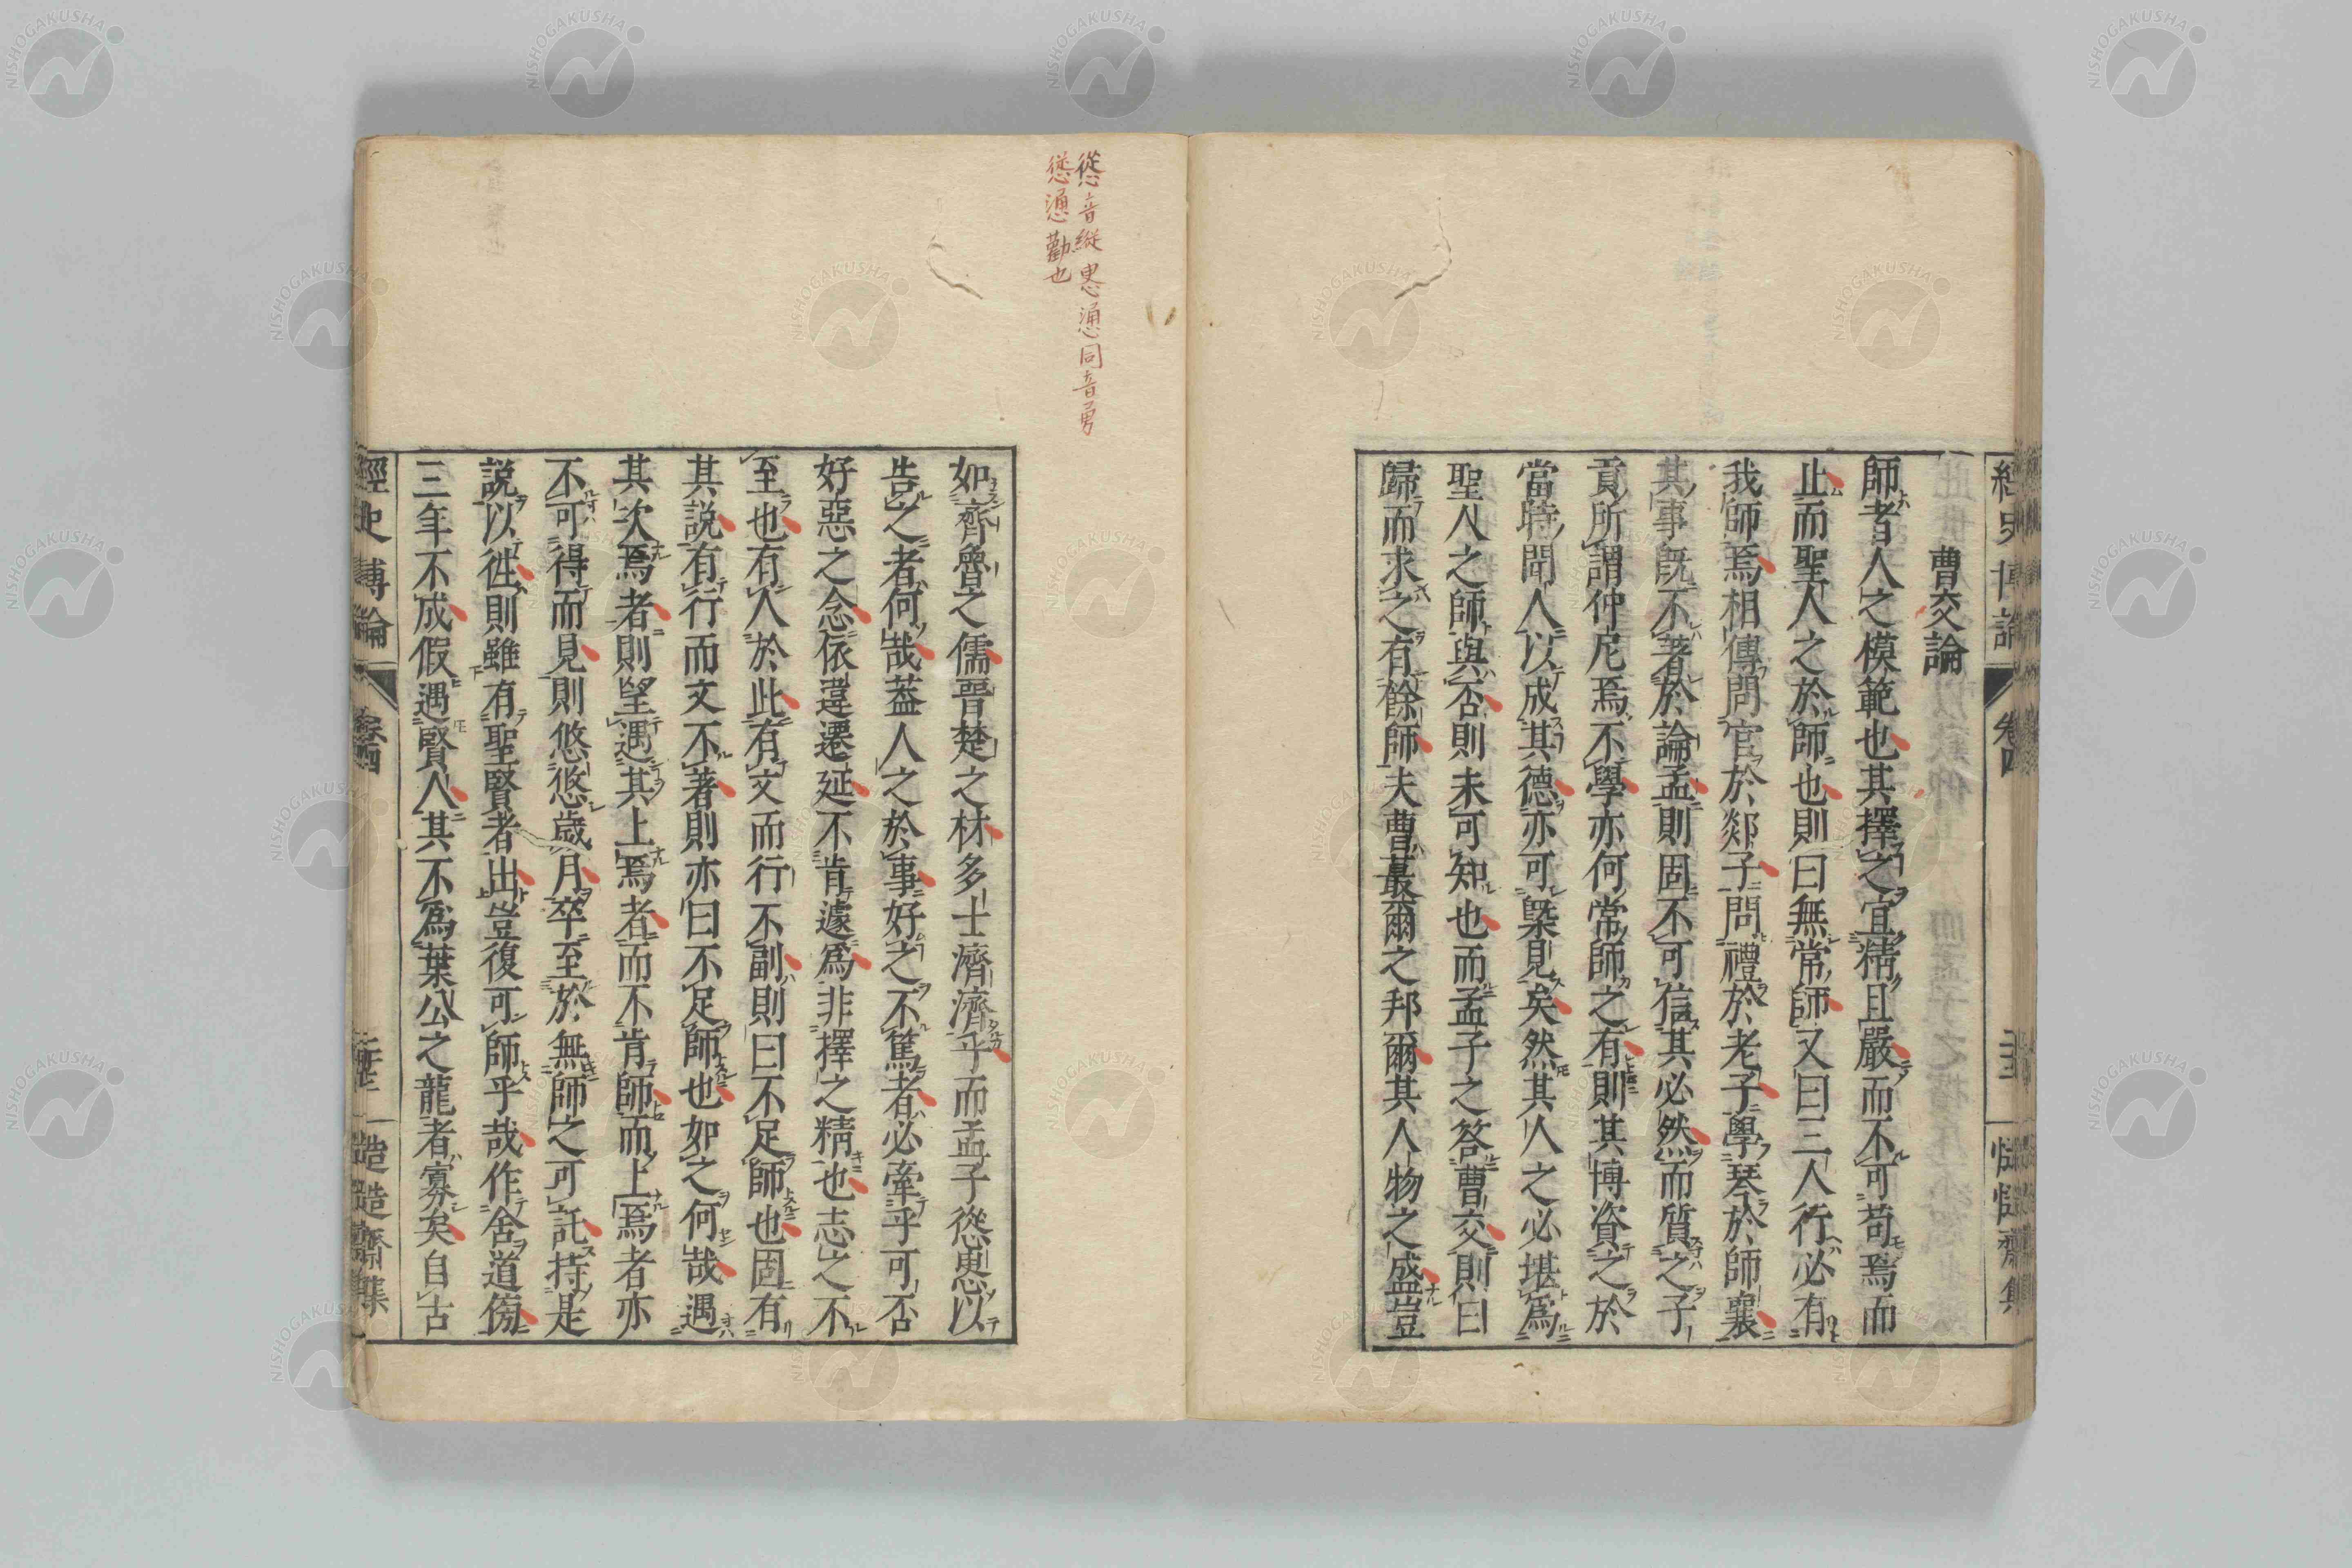 曹交論
師者人之模範也其擇之宜精且嚴而不可苟焉而
止而聖人之於師也則曰無常師又曰三人行必有
我師焉相傳問官於郯子問禮於老子學琴於師襄
其事既不著於論孟則固不可信其必然而質之子
貢所謂仲尼焉不學亦何常師之有則其博資之於
當時聞人以成其德亦可槩見矣然其人之必堪爲
聖人之師與否則未可知也而孟子之答曹交則曰
歸而求之有餘師夫曹蕞爾之邦爾其人物之盛豈
慫音縱 恿慂同音勇
慫慂勸也
如齊魯之儒晉楚之材多士濟濟乎而孟子慫恿以
告之者何哉蓋人之於事好之不篤者必牽乎可否
好惡之念依違遷延不肯遽爲非擇之精也志之不
至也有人於此有文而行不副則曰不足師也固有
其說有行而文不著則亦曰不足師也如之何哉遇
其次焉者則望遇其上焉者而不肯師而上焉者亦
不可得而見則悠悠歲月卒至於無師之可託持是
說以徃則雖有聖賢者出豈復可師乎哉作舍道傍
三年不成假遇賢人其不爲葉公之龍者寡矣自古
經史博論
卷四
NISHOGAKUSHA